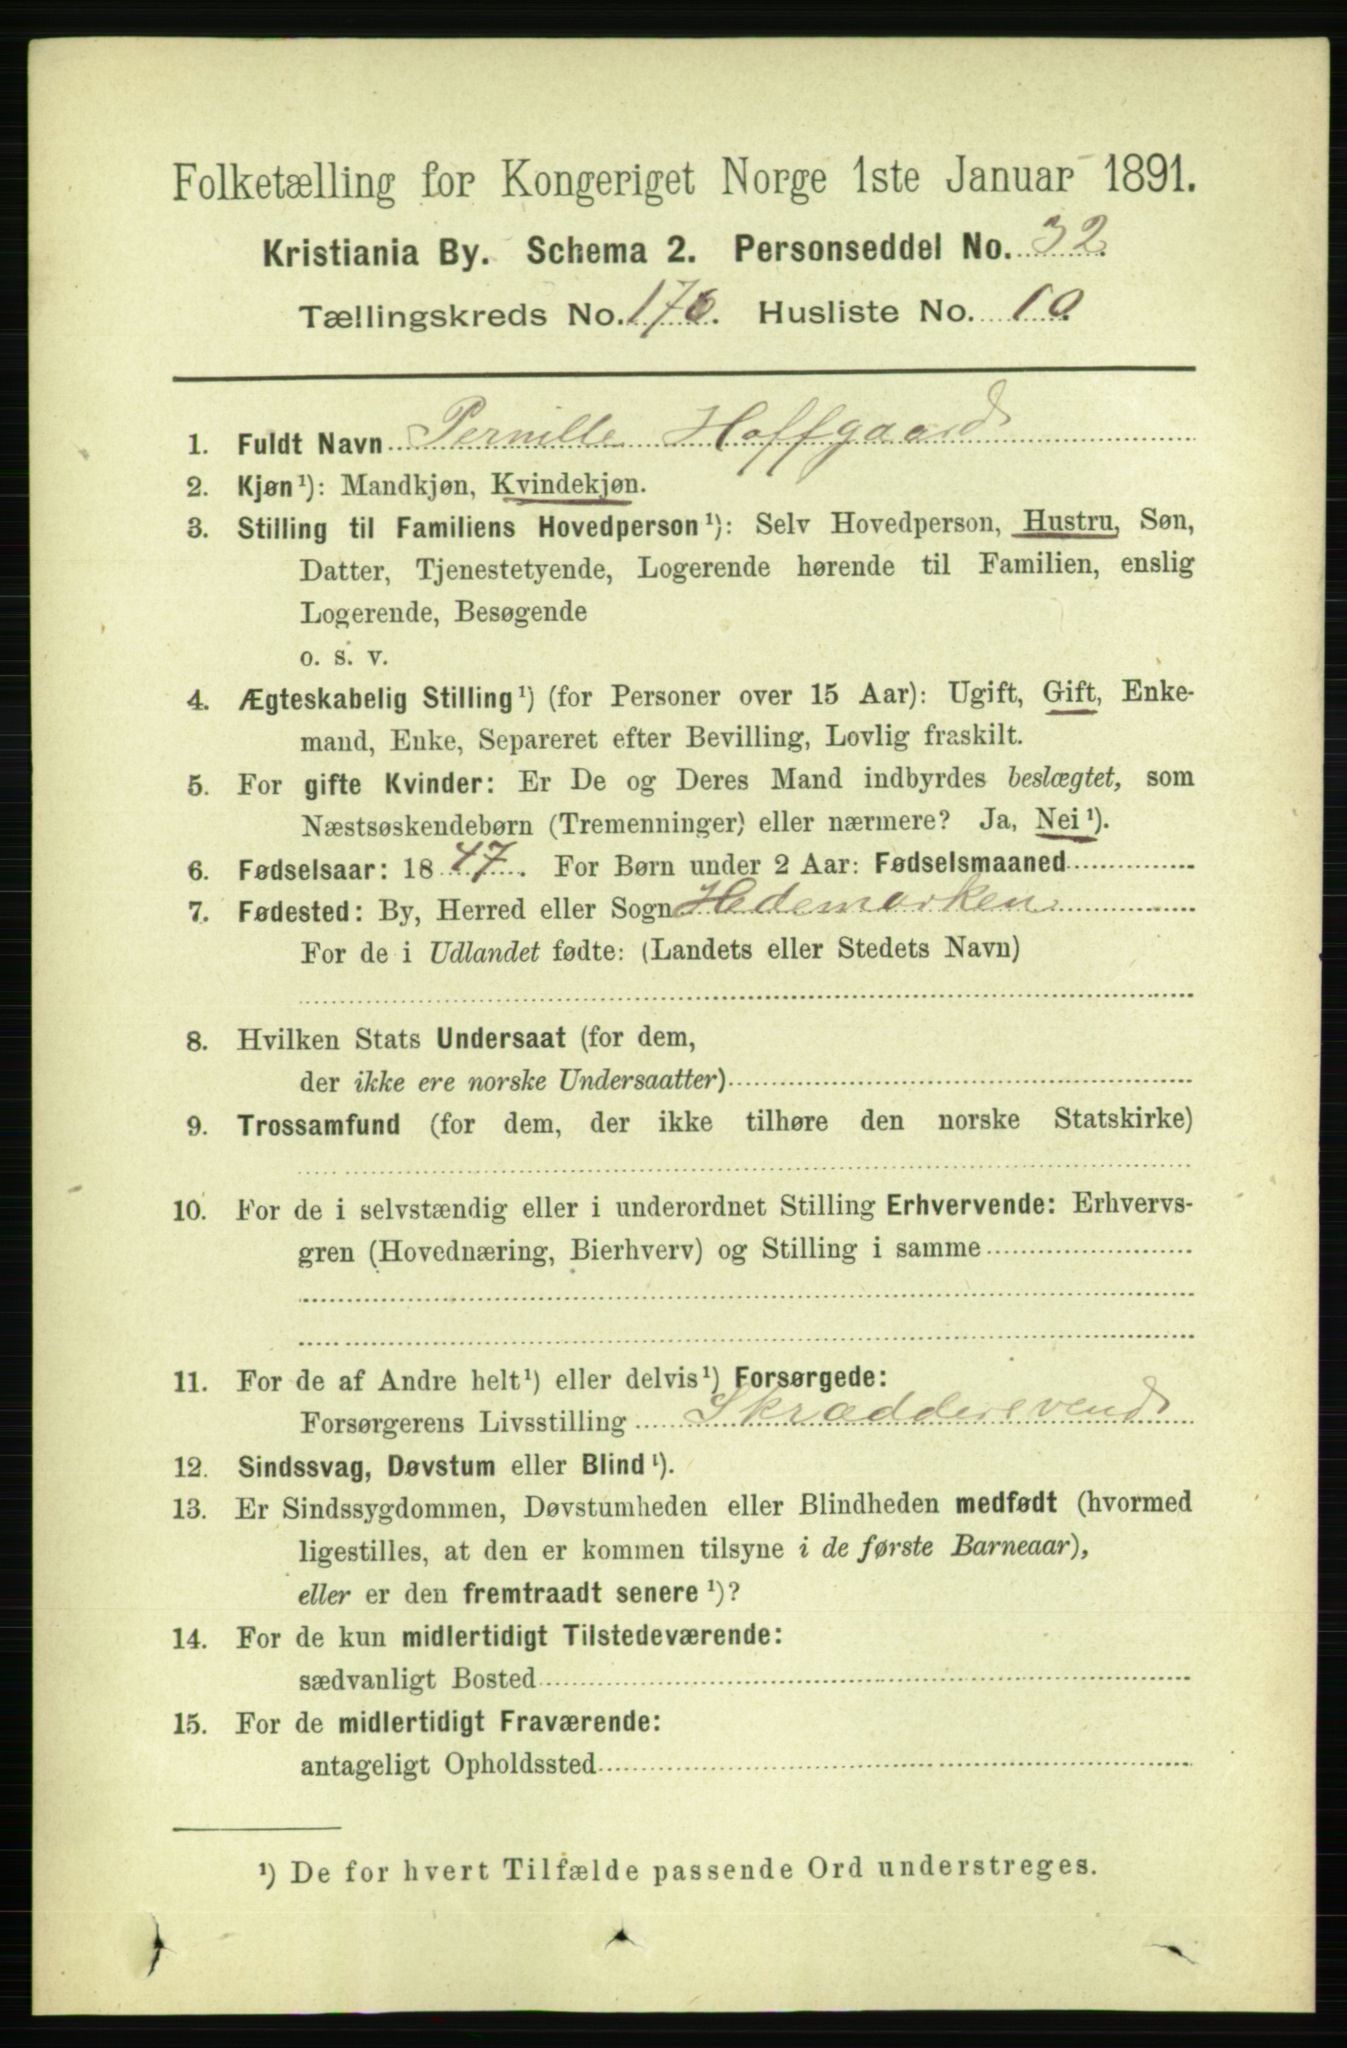 Folketælling for Kongeriget Norge 1ste Januar 1891.
Kristiania By. Schema 2. Personseddel No. 32.
Tællingskreds No. 176. Husliste No. 10.
1. Fuldt Navn Pernille Hoffgaard
2. Kjøn¹): Mandkjøn, Kvindekjøn.
3. Stilling til Familiens Hovedperson¹): Selv Hovedperson, Hustru, Søn,
Datter, Tjenestetyende, Logerende hørende til Familien, enslig
Logerende, Besøgende
o. s. v.
4. Ægteskabelig Stilling¹) (for Personer over 15 Aar): Ugift, Gift, Enke-
mand, Enke, Separeret efter Bevilling, Lovlig fraskilt.
5. For gifte Kvinder: Er De og Deres Mand indbyrdes beslægtet, som
Næstsøskendebørn (Tremenninger) eller nærmere? Ja, Nei¹).
6. Fødselsaar: 1847. For Børn under 2 Aar: Fødselsmaaned
7. Fødested: By, Herred eller Sogn Hedemarken
For de i Udlandet fødte: (Landets eller Stedets Navn)
8. Hvilken Stats Undersaat (for dem,
der ikke ere norske Undersaatter)
9. Trossamfund (for dem, der ikke tilhøre den norske Statskirke)
10. For de i selvstændig eller i underordnet Stilling Erhvervende: Erhvervs-
gren (Hovednæring, Bierhverv) og Stilling i samme
11. For de af Andre helt¹) eller delvis¹) Forsørgede:
Forsørgerens Livsstilling Skræddersvend
12. Sindssvag, Døvstum eller Blind¹).
13. Er Sindssygdommen, Døvstumheden eller Blindheden medfødt (hvormed
ligestilles, at den er kommen tilsyne i de første Barneaar),
eller er den fremtraadt senere¹)?
14. For de kun midlertidigt Tilstedeværende:
sædvanligt Bosted
15. For de midlertidigt Fraværende:
antageligt Opholdssted
¹) De for hvert Tilfælde passende Ord understreges.